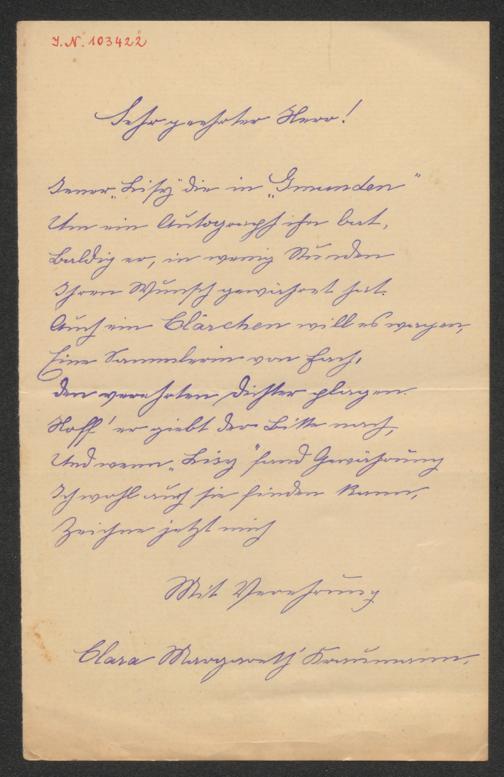 I. N. 103422
Sehr geehrter Herr!
Jener „Lisy" die in „Gmunden"
Um ein Autograph ihn bat,
Baldig er, in wenig Stunden
Ihren Wunsch gewähret hat.
Auch ein Clärchen will es wagen,
Eine Sammlerin von Fach,
den verehrten Dichter plagen.
Hoff' er giebt der Bitte nach,
Und wenn „Lisy" fand Gewährung
Ich wohl auch sie finden kann,
Zeichne jetzt mich
Mit Verehrung
Clara Margareth